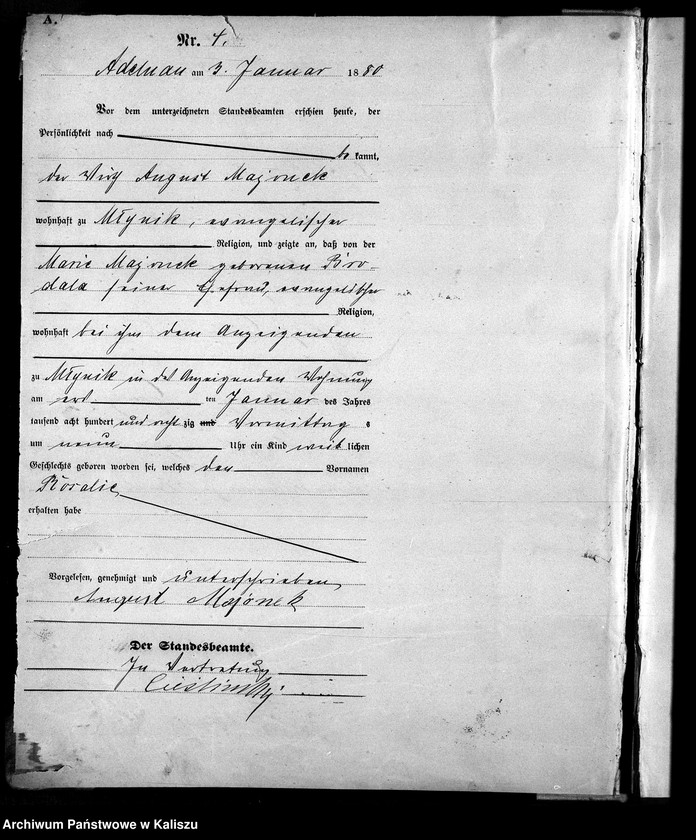 A.
Nr. 4.
Adelnau am 3. Januar 1880
Vor dem unterzeichneten Standesbeamten erschien heute, der
Persönlichkeit nach
be kannt,
der August Majonek
wohnhaft zu Młynik, evangelischer
Religion, und zeigte an, daß von der
Marie Majonek geborenen Bro-
dala seiner Ehefrau, evangelischer
Religion,
wohnhaft bei ihm dem Anzeigenden
zu Młynik in des Anzeigenden Wohnung
am ten Januar des Jahres
tausend acht hundert und acht zig und Vormittag s
um neun Uhr ein Kind weib lichen
Geschlechts geboren worden sei, welches den Vornamen
Rosalie
erhalten habe
Vorgelesen, genehmigt und unterschrieben
August Majonek
Der Standesbeamte.
In Vertretung
Archiwum Państwowe w Kaliszu